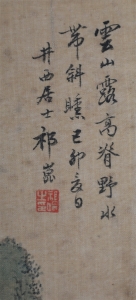 雲山露高脊野水
帶斜曛己卯夏日
井西居士祁崑